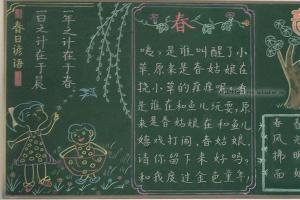 春日谚语
一年之计在于春
一日之计在于晨
春
咦,是谁叫醒了小
草,原来是春姑娘在
挠小草的痒痒呢,看
是谁在和鱼儿玩耍,原
来是春姑娘在和鱼儿
嬉戏打闹,春姑娘,
请你留下来好吗,
和我度过金色童年,
春风拂面